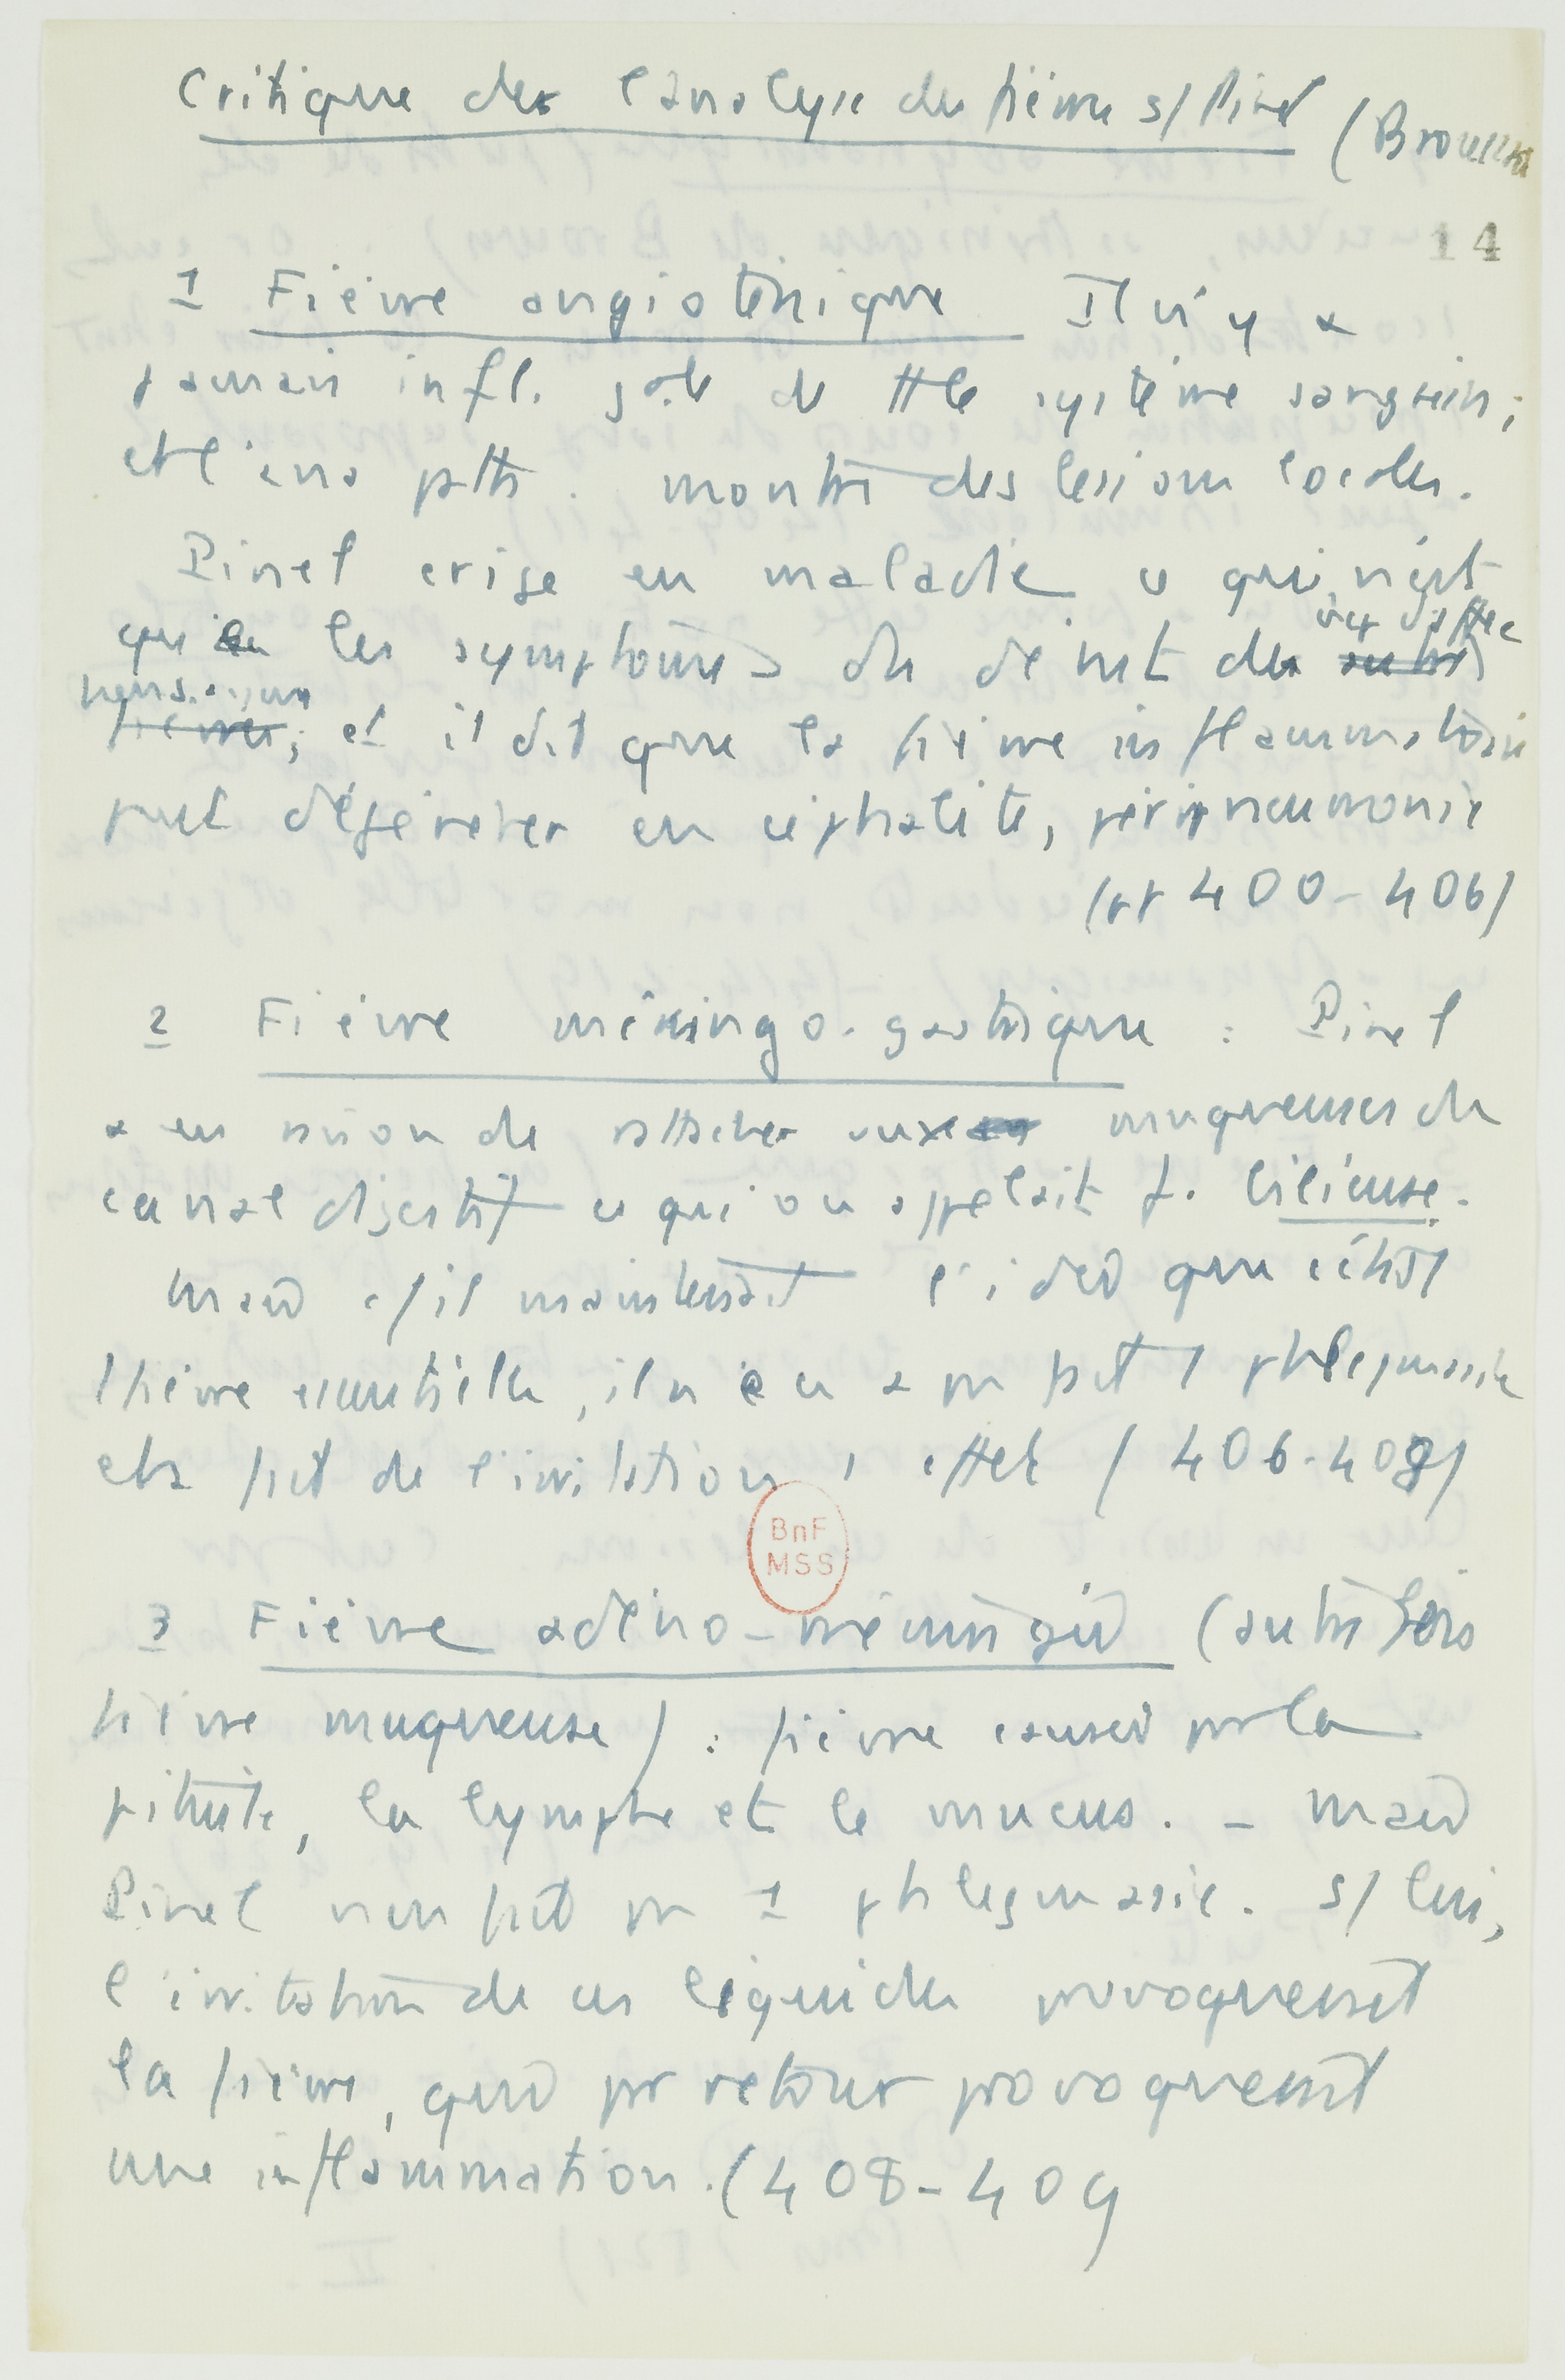 Critique de l'analyse des fièvres s/ Pinel (Broussais
14
1 Fièvre angioténique Il n'y a
jamais infl. gole de tt le système sanguin;
et l'ana path. montre des lésions locales.
Pinel erige en maladie ce qui n'est
que les symptômes du début des
et il dit que la fièvre inflammatoire
peut dégénérer en céphalite, péripneumonie
(pp 400-406)
2 Fièvre méningo-gastrique : Pinel
a eu raison de rattacher aux muqueuses du
canal digestif ce qu'on appelait f. bilieuse.
Mais c/ il maintenait l'idée que c'était
1 fièvre essentielle, il n'en a pas fait 1 phlegmasie
et a fait de l'irritation 1 effet (406-408)
BnF
MSS
3 Fièvre adéno-méningée (autrefois
fièvre muqueuse) : fièvre causée par la
pituite, la lymphe et le mucus. - Mais
Pinel n'en fait pas 1 phlegmasie. s/ lui,
l'irritation de ces liquides provoquerait
la fièvre, qui par retour provoquerait
une inflammation. (408-409